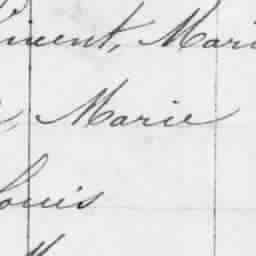 Vincent, Mari
, Marie
Louis